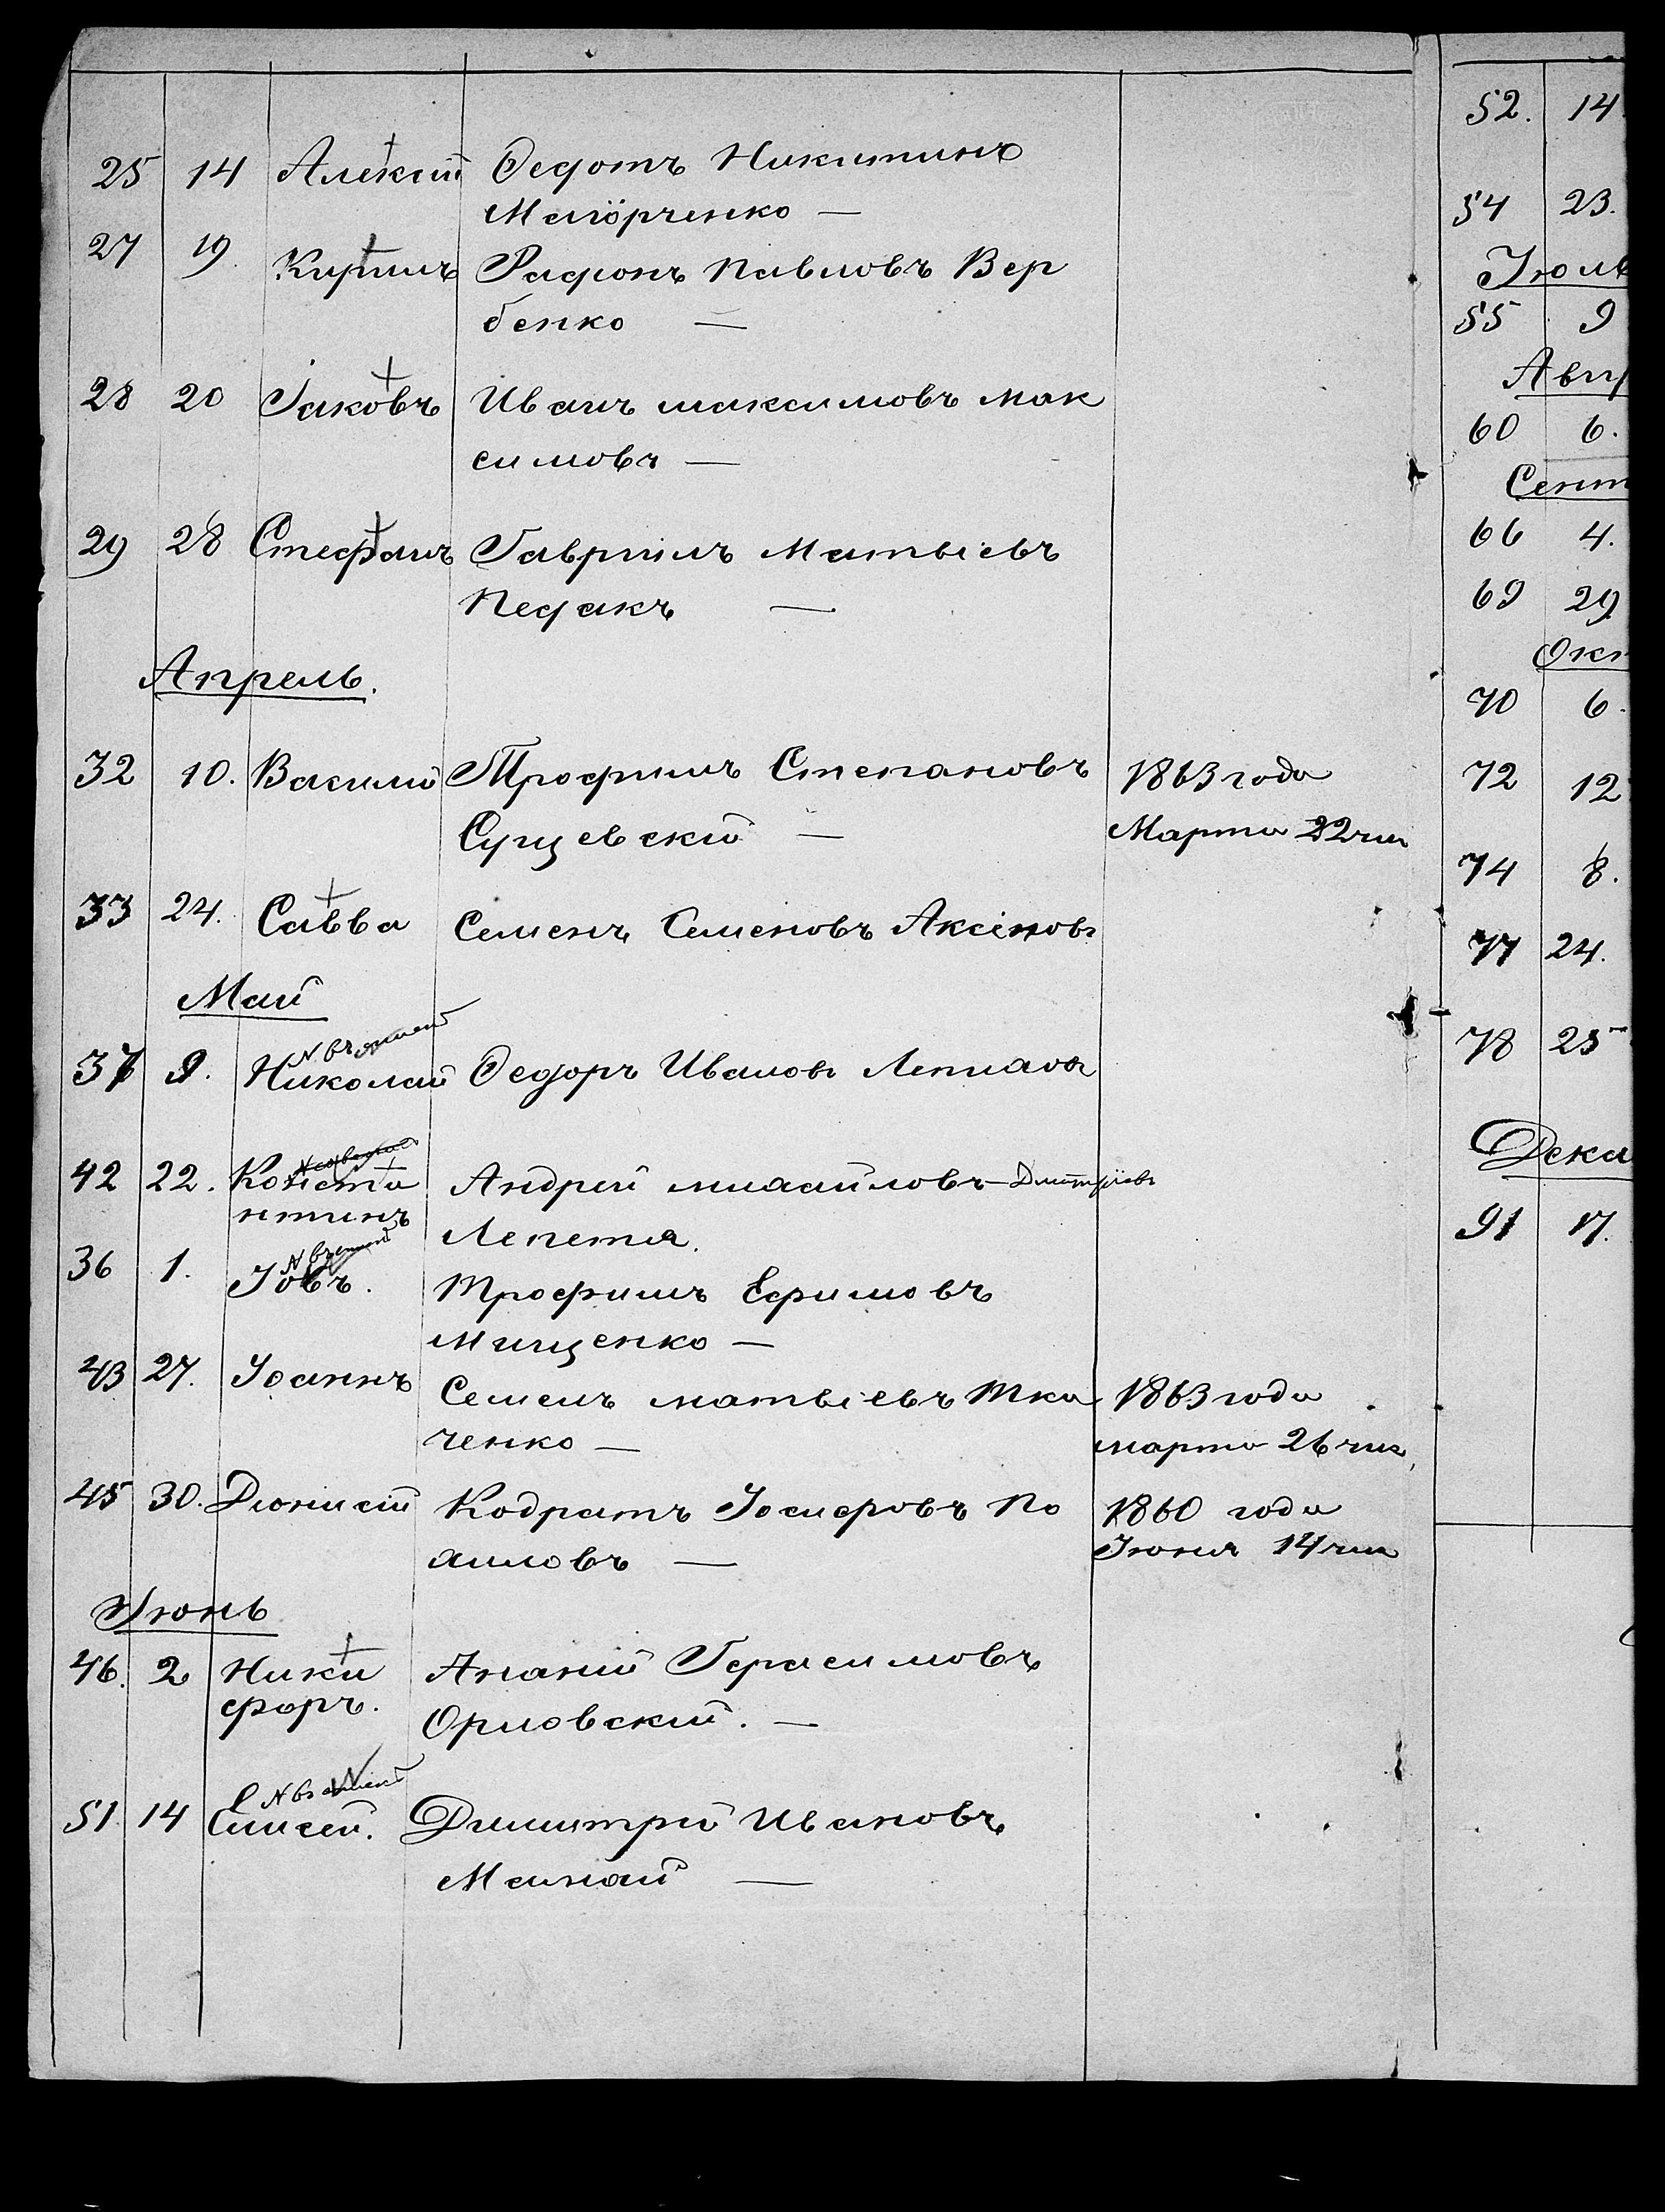 25 14 Алексій Федотъ Никитинъ
Маіорченко —
27 19. Кирилъ Рафонъ Павловъ Вер
бенко —
28 20 Іаковъ Иванъ максимовъ мак
симовъ —
29 28 Стефанъ Гавріилъ Матвіевъ
Педакъ —
Апрель.
32 10. Василій Трофимъ Степановъ 1863 года
Сущевскій — Марта 22 чис
33 24. Савва Семенъ Семеновъ Аксіновъ
Май
37 9. Николай Федоръ Ивановъ
42 22. Конста Андрей михайловъ Дмитріевъ
нтинъ Лепетя.
36 1. Іовъ. Трофимъ Ефимовъ
Мищенко —
43 27. Іоаннъ Семенъ матвіевъ Тка 1863 года
ченко — марта 26 чис
45 30. Діонисій Кодратъ Іосифовъ По 1860 года
аиловъ — Іюня 14 чис
Іюнь
46. 2 Ники Ананій Герасимовъ
форъ. Орловскій. —
51. 14 Елисей. Димитрій Ивановъ
Манай —
52. 14
54 23.
Іюль
55 9
Авг
60 6.
Сент
66 4.
69 29
Окт
70 6.
72 12
74 8.
77 24.
78 25
Дека
91 17.